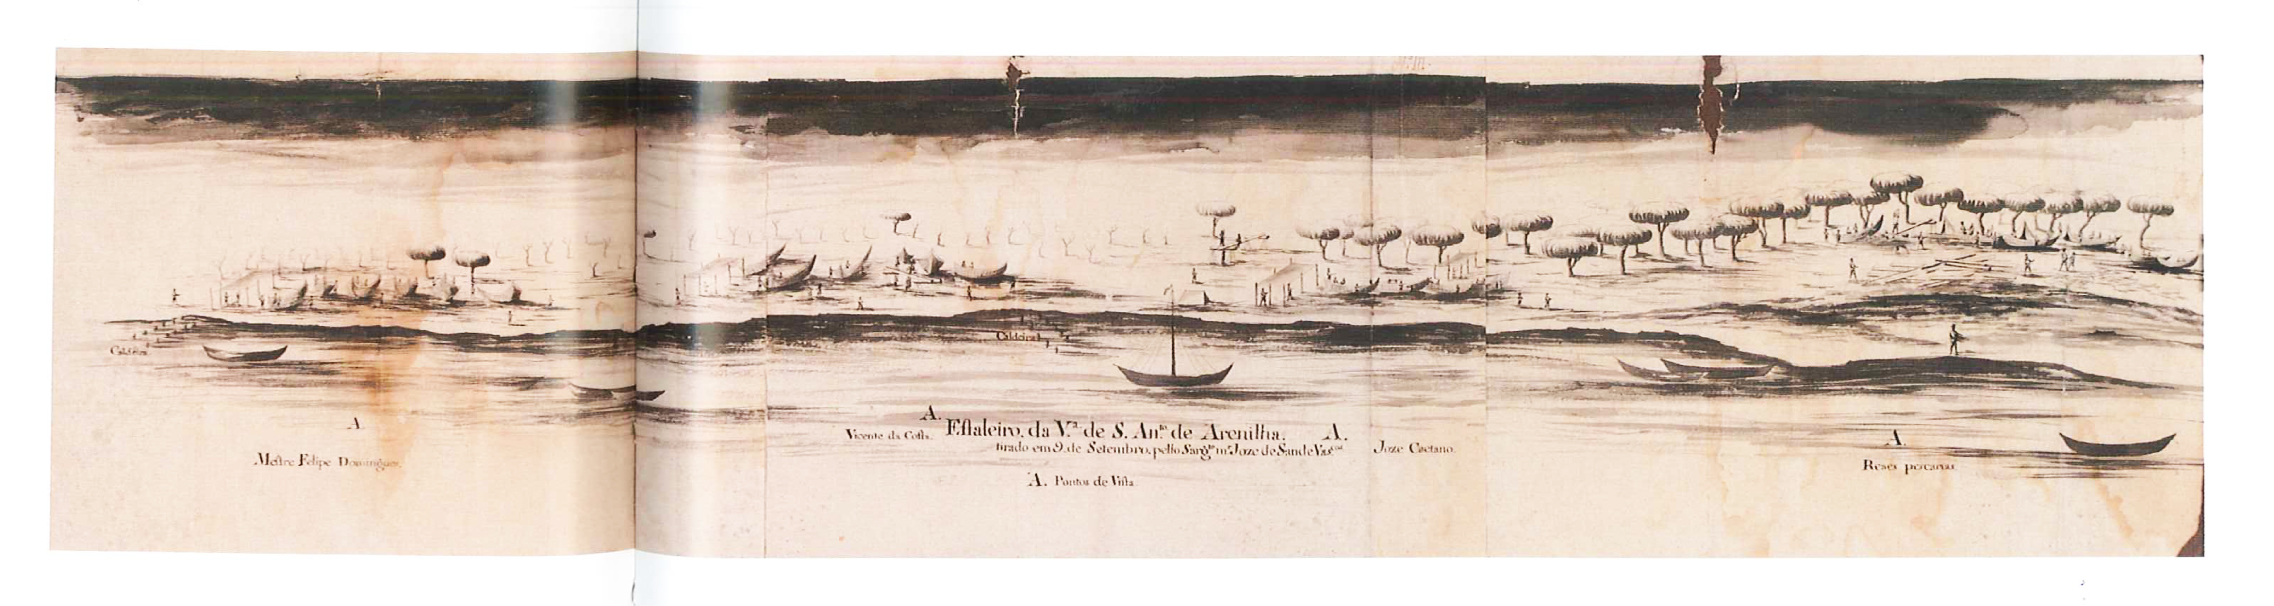 Caldeira
Caldeira
A.
Mestre Felipe Domingues.
A.
Vicente da Costa.
Estaleiro, da V.ª de S. An.to de Arenilha.
tirado em 9. de Setembro, pello Sarg.to m.r Joze de Sande Vas.cos
A. Pontos de Vista.
A.
Joze Caetano.
A.
Reaes pescarias.